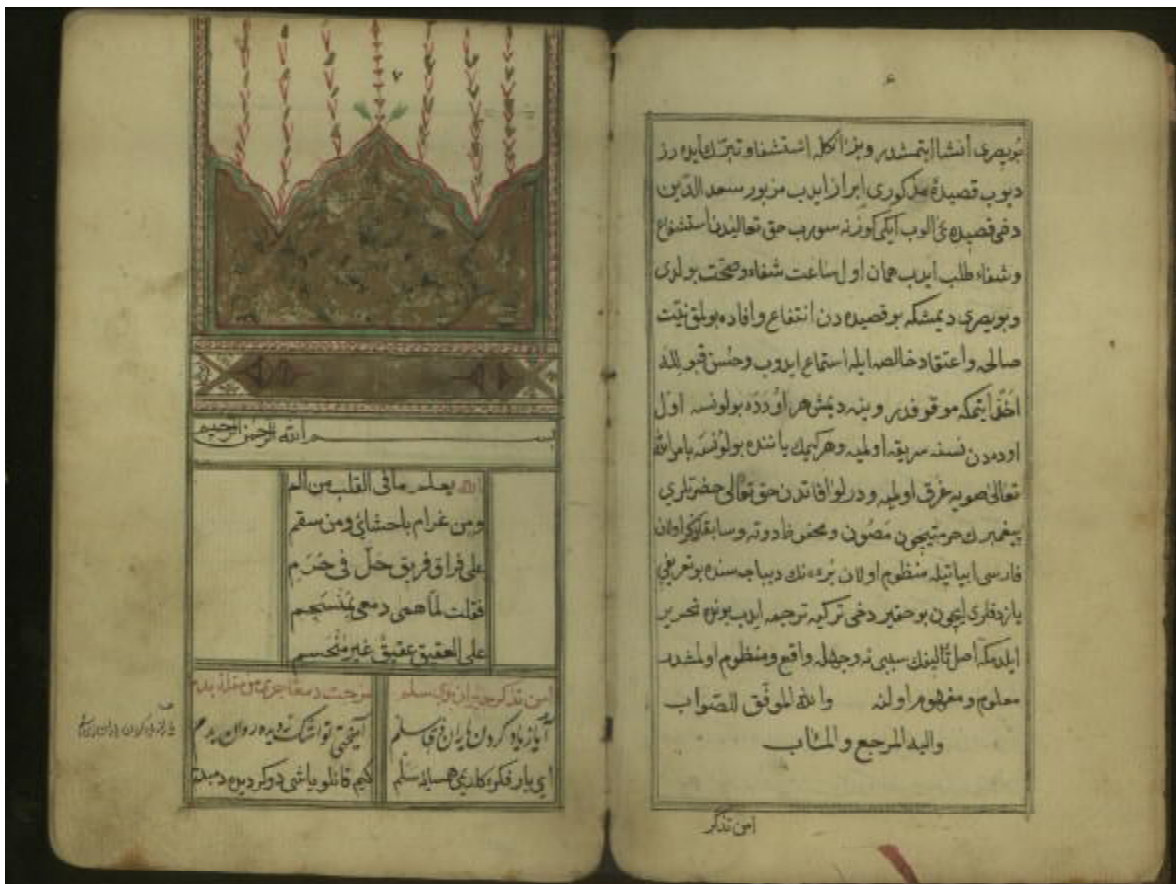 ٤
بوصيرى انشا ايتمشدر وبز انكله استشفا وتبرك ايده رز
ديوب قصيدۀ مذكورى ابراز ايدب مزبور سعد الدين
دخى قصيده ئى الوب ايكى كوزنه سورب حق تعاليدن استشفاع
وشفاء طلب ايدب همان اول ساعت شفاء وصحت بولدى
وبوصيرى ديمشكه بو قصيده دن انتفاع وافاده بولمق نيت
صالحه واعتقاد خالصه ايله استماع ايدوب وحسن قبولله
اخفا ايتمكه موقوفدر وينه ديمش هر اوده بولونسه اول
اودن نسنه سرقه اولميه وهر كيمك ياننده بولونسه بامر الله
تعالى صويه غرق اوليه ودرلو افاتدن حق تعالى حضرتلرى
پيغمبرك حرمتيچون مصون ومحفوظ اوله وسابقا ذكر اولان
فارسى ابياتيله منظوم اولان برءه نك ديباجه سنده بو تعريفى
يازدقلرى ايچون بو حقير دخى تركيه ترجمه ايدب بونده تحرير
ايلدمكه اصل تأليفنك سببى نه وجهله واقع ومنظوم اولمشدر
معلوم ومفهوم اولنه والله الموفق للصواب
واليه المرجع والمئاب
امن تذكر
بسم الله الرحمن الرحيم
الله يعلم ما فى القلب من الم
ومن غرام باحشائى ومن سقم
على فراق فريق حل فى حرم
فقلت لما همى دمعى بمنسجم
على العقيق عقيق غير منحسم
امن تذكر جيران بذى سلم مزجت دمعا جرى من مقلة بدم
آيا زياد كردن ياران ذى سلم آميختى تو اشك ز ديده روان بدم
اى يار فكره كلدى همسايۀ سلم كيم قانلو ياشى دوكر ديده دمبدم